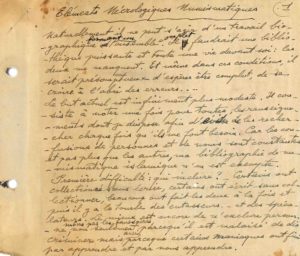 Eléments Nécrologiques Numismatiques
1
Naturellement il ne peut s'agir d'un travail bio-
graphique d'ensemble. Il y faudrait une biblio-
thèque puissante et toute une vie devant soi: les
deux me manquent. Et même dans ces conditions, il
serait présomptueux d'espérer être complet, de se
croire à l'abri des erreurs...
Le but actuel est infiniment plus modeste. Il con-
siste à noter une fois pour toutes les renseigne-
ments dont je dispose afin d'éviter de les recher-
cher chaque fois qu'ils me font besoin. Car les con-
fusions de personnes et de noms sont constantes
et pas plus que les autres, une bibliographie de nu-
mismatique islamique n'en est exempte.
Première difficulté: qui inclure? Certains ont
collectionné sans écrire, certains ont écrit sans col-
lectionner, beaucoup ont fait les deux à la fois et
puis il y a la foule des amateurs et des
encore de n'exclure personne,
parce qu'il est malaisé de dis-
criminer mais parce que certains maniaques ont fini
par apprendre et par nous apprendre.